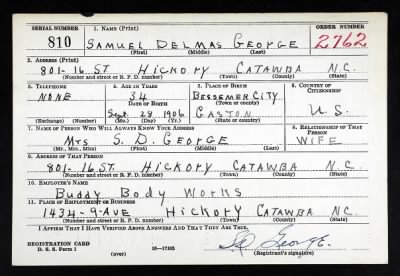 SERIAL NUMBER 1. NAME (Print) ORDER NUMBER
810 SAMUEL DELMAS GEORGE 2762
(First) (Middle) (Last)
2. ADDRESS (Print)
801-16 ST HICKORY CATAWBA N.C.
(Number and street or R. F. D. number) (Town) (County) (State)
3. TELEPHONE 4. AGE IN YEARS 5. PLACE OF BIRTH 6. COUNTRY OF CITIZENSHIP
NONE 34 BESSEMER CITY
DATE OF BIRTH (Town or county)
Sept. 28 1906 GASTON U.S.
(Exchange) (Number) (Mo.) (Day) (Yr.) (State or country)
7. NAME OF PERSON WHO WILL ALWAYS KNOW YOUR ADDRESS 8. RELATIONSHIP OF THAT PERSON
MRS S. D. GEORGE WIFE
(Mr., Mrs., Miss) (First) (Middle) (Last)
9. ADDRESS OF THAT PERSON
801-16 ST. HICKORY CATAWBA N.C.
(Number and street or R. F. D. number) (Town) (County) (State)
10. EMPLOYER'S NAME
Buddy Body Works
11. PLACE OF EMPLOYMENT OR BUSINESS
1434-9-AVE HICKORY CATAWBA NC.
(Number and street or R. F. D. number) (Town) (County) (State)
I AFFIRM THAT I HAVE VERIFIED ABOVE ANSWERS AND THAT THEY ARE TRUE.
REGISTRATION CARD
D. S. S. Form 1 16-17105 S D George
(over) (Registrant's signature)